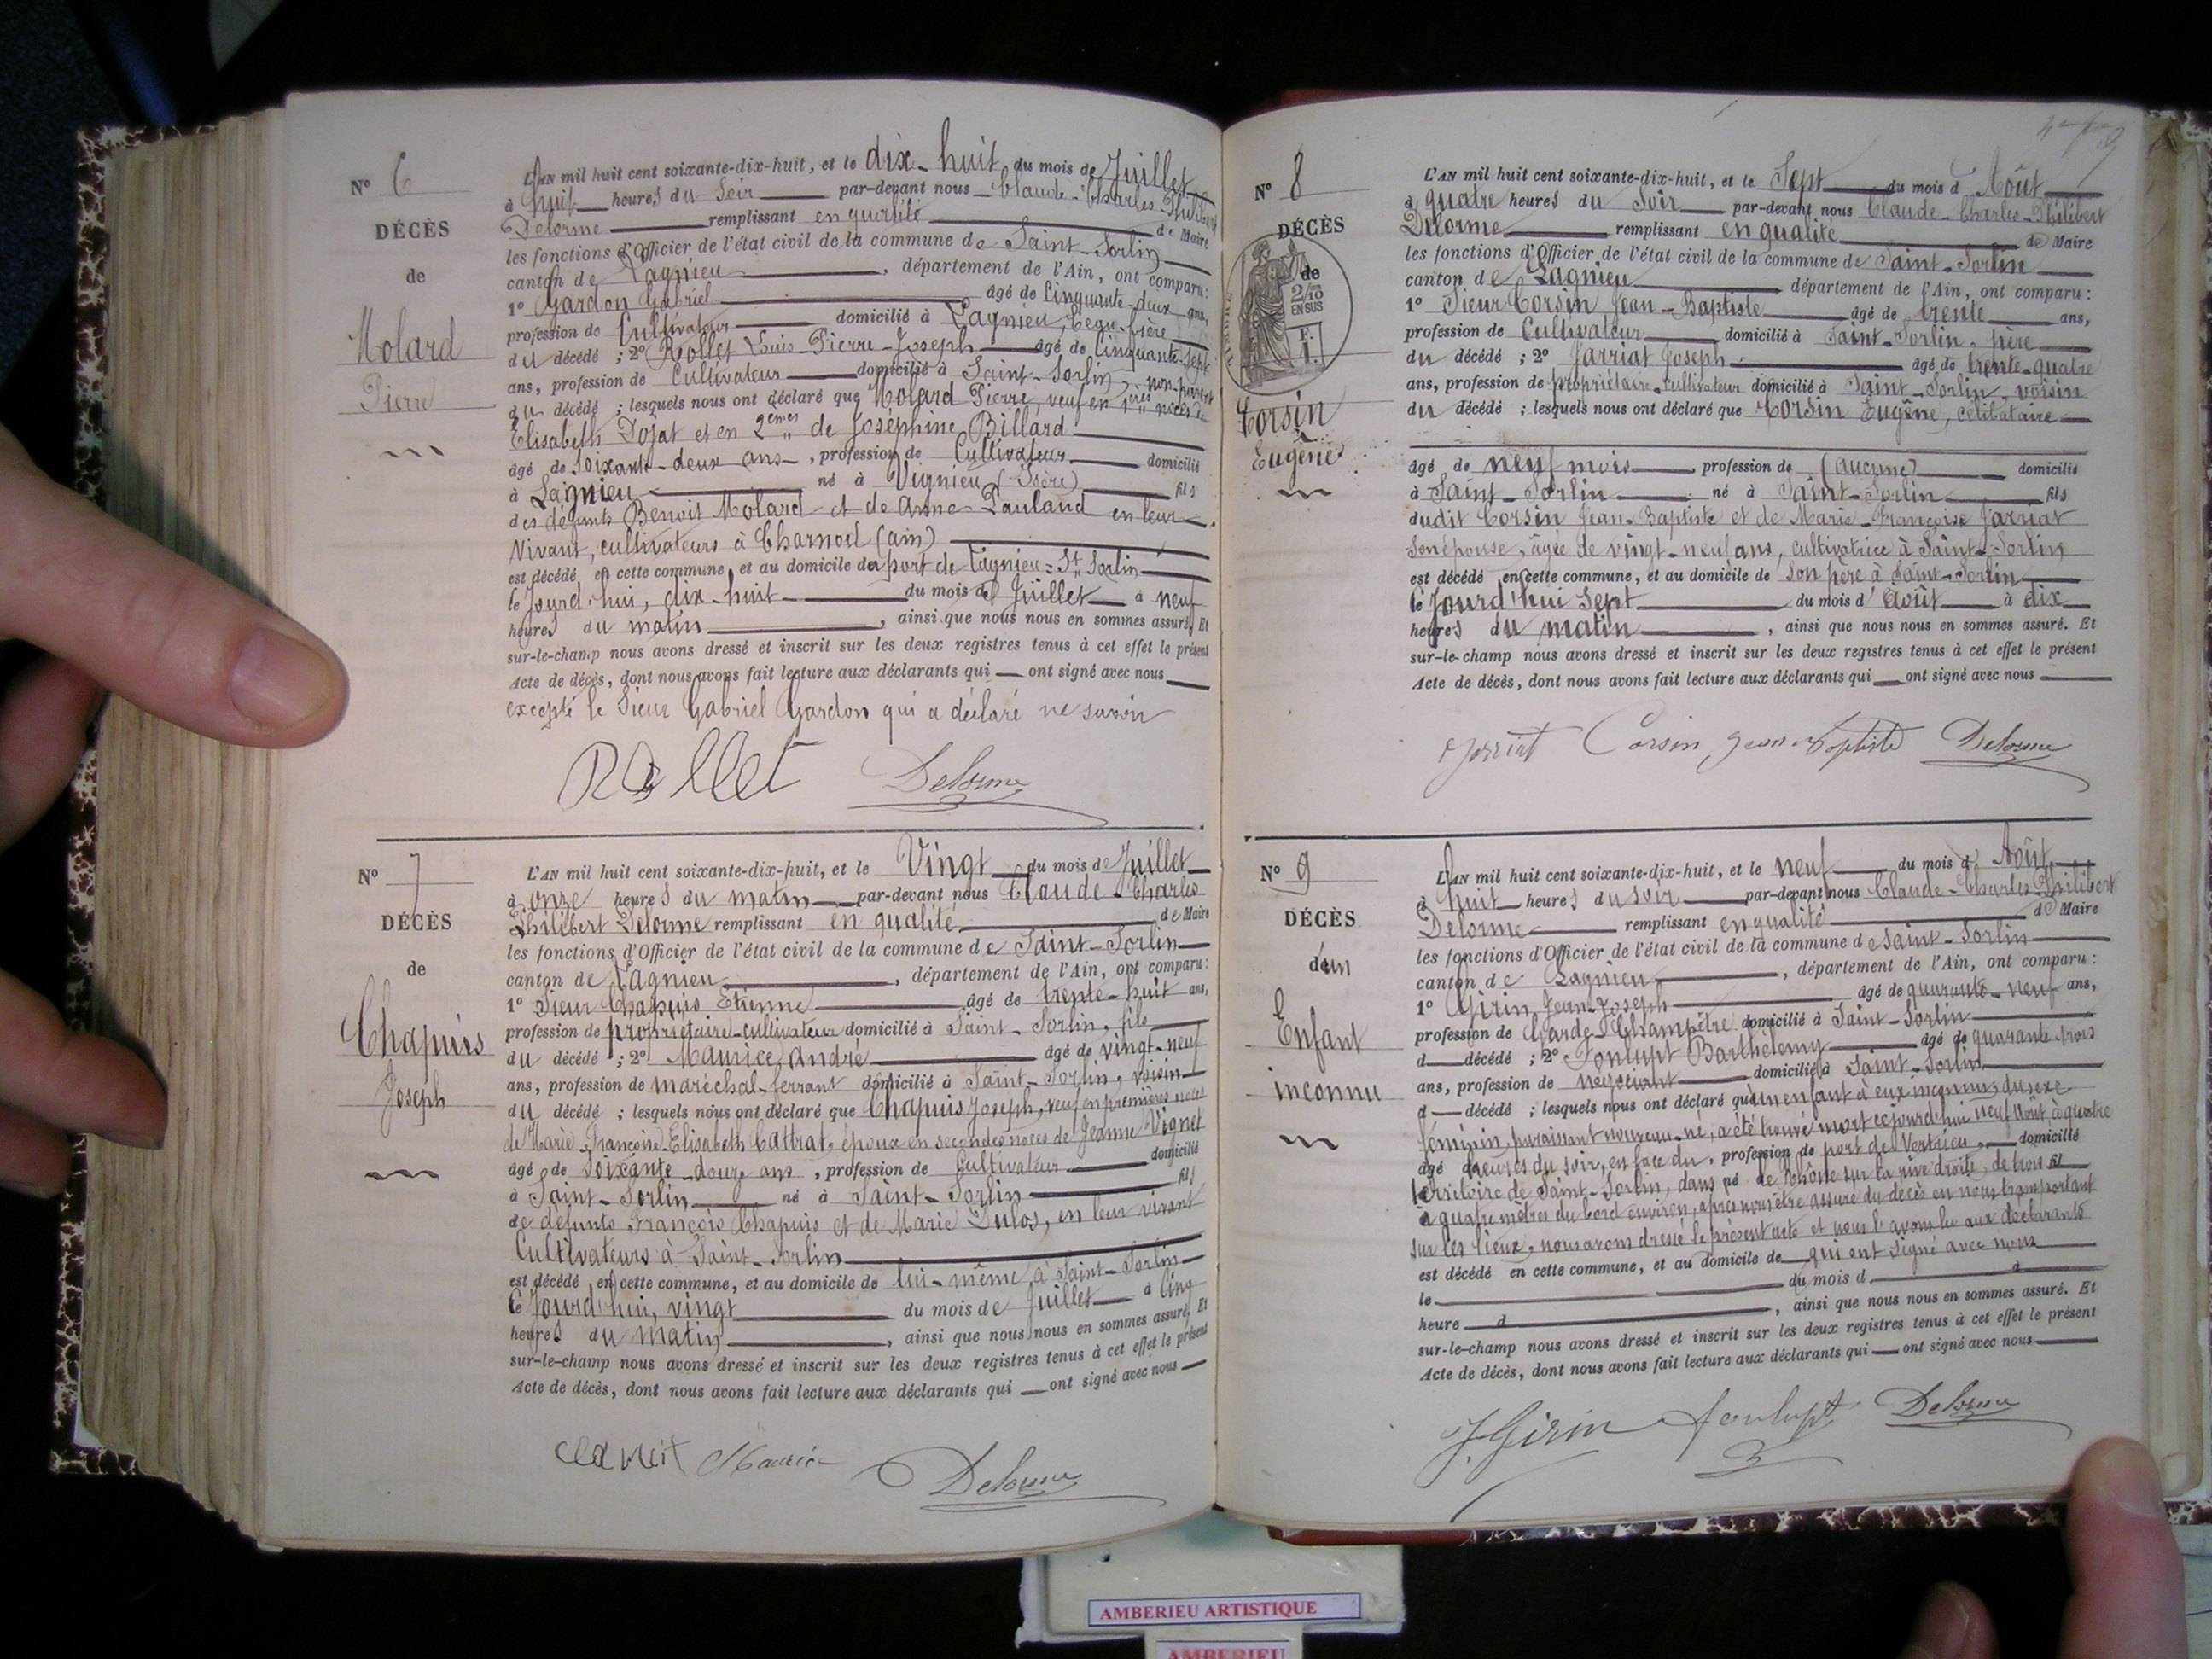 N° 6
DÉCÈS
de
Molard
Pierre
L'AN mil huit cent soixante-dix-huit, et le dix-huit du mois de Juillet
à huit heures du soir par-devant nous Claude-Charles-Philibert
Delorme remplissant en qualité de Maire
les fonctions d'Officier de l'état civil de la commune de Saint-Sorlin
canton de Lagnieu, département de l'Ain, ont comparu:
1° Gardon Gabriel âgé de Cinquante-deux ans,
profession de Cultivateur domicilié à Lagnieu, beau-frère
du décédé ; 2° Rollet Louis-Pierre-Joseph âgé de Cinquante-sept
ans, profession de Cultivateur domicilié à Saint-Sorlin, non-parent
du décédé ; lesquels nous ont déclaré que Molard Pierre, veuf en 1ères noces de
Elisabeth Dojat et en 2emes de Joséphine Billard
âgé de soixante-deux ans, profession de Cultivateur domicilié
à Lagnieu né à Vignieu (Isère) fils
des défunts Benoit Molard et de Anne Pauland en leur
vivant, cultivateurs à Charnod (ain)
est décédé en cette commune, et au domicile du port de Lagnieu = St Sorlin
le Jourd'hui, dix-huit du mois de Juillet à neuf
heures du matin, ainsi que nous nous en sommes assuré. Et
sur-le-champ nous avons dressé et inscrit sur les deux registres tenus à cet effet le présent
Acte de décès, dont nous avons fait lecture aux déclarants qui ont signé avec nous
excepté le Sieur Gabriel Gardon qui a déclaré ne savoir
Rollet Delorme
N° 7
DÉCÈS
de
Chapuis
Joseph
L'AN mil huit cent soixante-dix-huit, et le Vingt du mois de Juillet
à onze heures du matin par-devant nous Claude-Charles
Philibert Delorme remplissant en qualité de Maire
les fonctions d'Officier de l'état civil de la commune de Saint-Sorlin
canton de Lagnieu, département de l'Ain, ont comparu:
1° Sieur Chapuis Etienne âgé de trente-huit ans,
profession de propriétaire-cultivateur domicilié à Saint-Sorlin, fils
du décédé ; 2° Maurice André âgé de vingt-neuf
ans, profession de maréchal-ferrant domicilié à Saint-Sorlin, voisin
du décédé ; lesquels nous ont déclaré que Chapuis Joseph, veuf en premières noces
de Marie-Françoise-Elisabeth Cattrat, époux en secondes noces de Jeanne Vignet
âgé de soixante-douze ans, profession de Cultivateur domicilié
à Saint-Sorlin né à Saint-Sorlin fils
de défunts François Chapuis et de Marie Dulos, en leur vivant
Cultivateurs à Saint-Sorlin
est décédé en cette commune, et au domicile de lui-même à Saint-Sorlin
le Jourd'hui, vingt du mois de Juillet à Cinq
heures du matin, ainsi que nous nous en sommes assuré. Et
sur-le-champ nous avons dressé et inscrit sur les deux registres tenus à cet effet le présent
Acte de décès, dont nous avons fait lecture aux déclarants qui ont signé avec nous
Maurice Delorme
N° 8
DÉCÈS
de
2/10
EN SUS
F.
1.
Corsin
Eugène
L'AN mil huit cent soixante-dix-huit, et le Sept du mois d'Août
à quatre heures du soir par-devant nous Claude-Charles-Philibert
Delorme remplissant en qualité de Maire
les fonctions d'Officier de l'état civil de la commune de Saint-Sorlin
canton de Lagnieu département de l'Ain, ont comparu:
1° Sieur Corsin Jean-Baptiste âgé de trente ans,
profession de Cultivateur domicilié à Saint-Sorlin, père
du décédé ; 2° Jarriat Joseph âgé de trente-quatre
ans, profession de propriétaire-cultivateur domicilié à Saint-Sorlin, voisin
du décédé ; lesquels nous ont déclaré que Corsin Eugène, célibataire
âgé de neuf mois, profession de (aucune) domicilié
à Saint-Sorlin né à Saint-Sorlin fils
dudit Corsin Jean-Baptiste et de Marie-Françoise Jarriat
son épouse, âgée de vingt-neuf ans, cultivatrice à Saint-Sorlin
est décédé en cette commune, et au domicile de son père à Saint-Sorlin
le Jourd'hui Sept du mois d'août à dix
heures du matin, ainsi que nous nous en sommes assuré. Et
sur-le-champ nous avons dressé et inscrit sur les deux registres tenus à cet effet le présent
Acte de décès, dont nous avons fait lecture aux déclarants qui ont signé avec nous
Jarriat Corsin Jean Baptiste Delorme
N° 9
DÉCÈS
d'un
Enfant
inconnu
L'AN mil huit cent soixante-dix-huit, et le neuf du mois d'Août
à huit heures du soir par-devant nous Claude-Charles-Philibert
Delorme remplissant en qualité de Maire
les fonctions d'Officier de l'état civil de la commune de Saint-Sorlin
canton de Lagnieu, département de l'Ain, ont comparu:
1° Girin Jean-Joseph âgé de quarante-neuf ans,
profession de Garde-Champêtre domicilié à Saint-Sorlin
d décédé ; 2° Fonlupt Barthélemy âgé de quarante-trois
ans, profession de négociant domicilié à Saint-Sorlin
d décédé ; lesquels nous ont déclaré qu'un enfant à eux inconnu, du sexe
féminin, paraissant nouveau-né, a été trouvé mort cejourd'hui neuf Août, à quatre
âgé heures du soir, en face du, profession de port de Vertrieu, domicilié
territoire de Saint-Sorlin, dans né le Rhône sur la rive droite, de trois fil
à quatre mètres du bord environ, après nous être assuré du décès en nous transportant
sur les lieux, nous avons dressé le présent acte et nous l'avons lu aux déclarants
est décédé en cette commune, et au domicile de qui ont signé avec nous
le du mois d à
heure d, ainsi que nous nous en sommes assuré. Et
sur-le-champ nous avons dressé et inscrit sur les deux registres tenus à cet effet le présent
Acte de décès, dont nous avons fait lecture aux déclarants qui ont signé avec nous
J. Girin fonlupt Delorme
AMBERIEU ARTISTIQUE
AMBERIEU